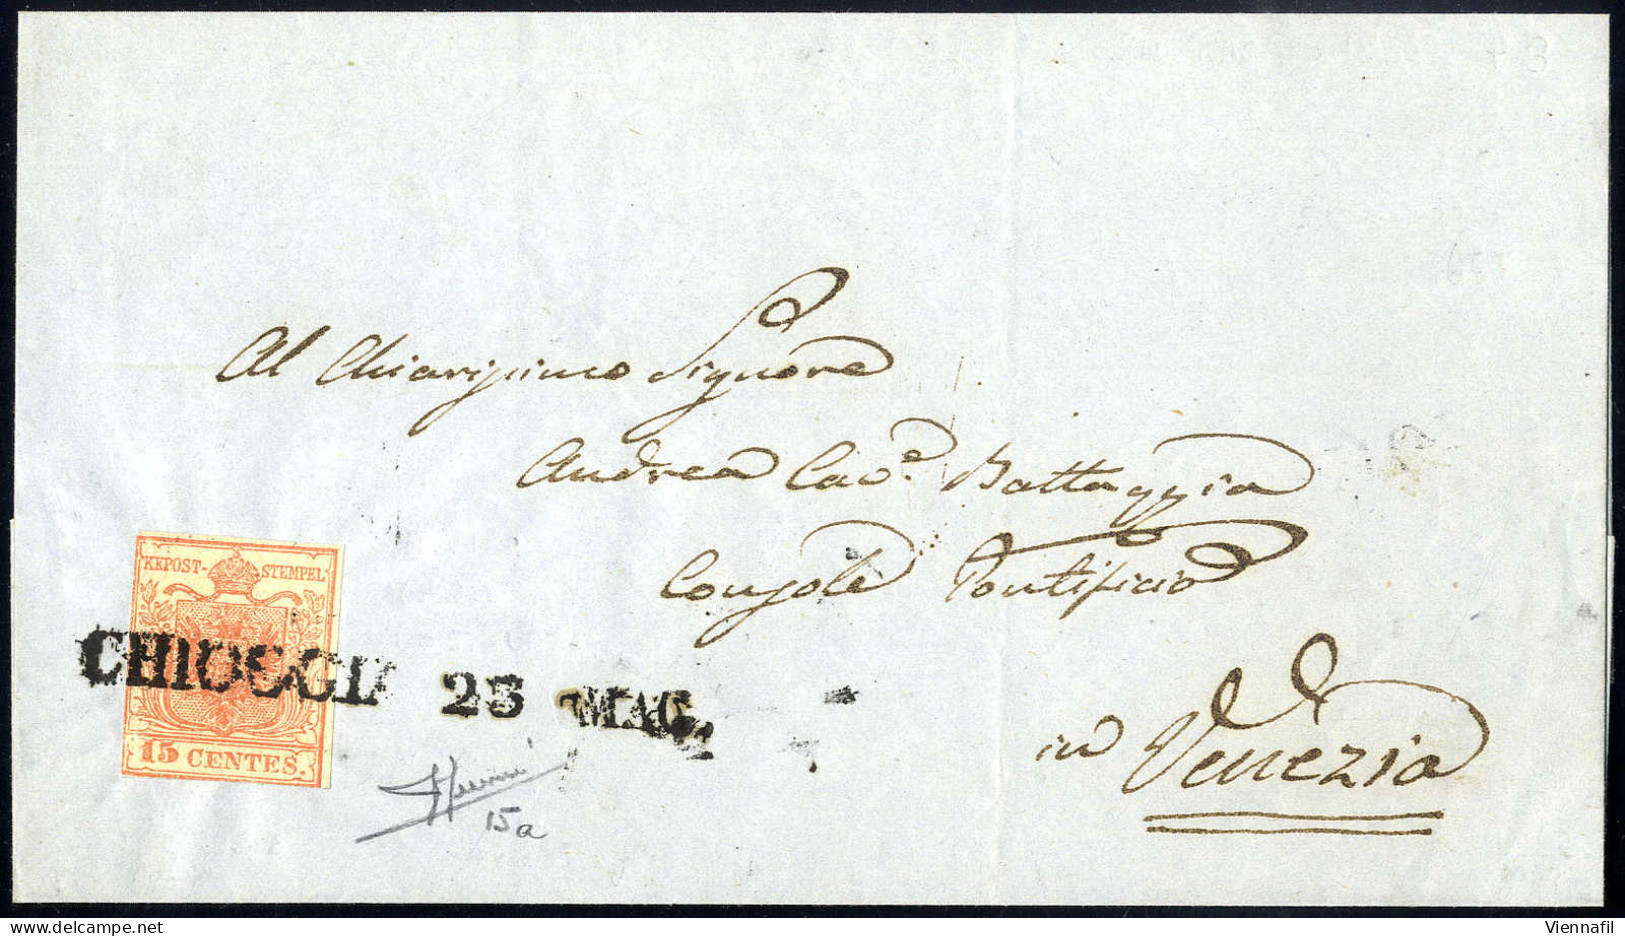 Al Chiarissimo Signore
Andrea Cav.e Battaggia
Console Pontificio
in Venezia
KKPOST-STEMPEL
15 CENTES.
CHIOGGIA 25 MAG.
15a
Viennafil